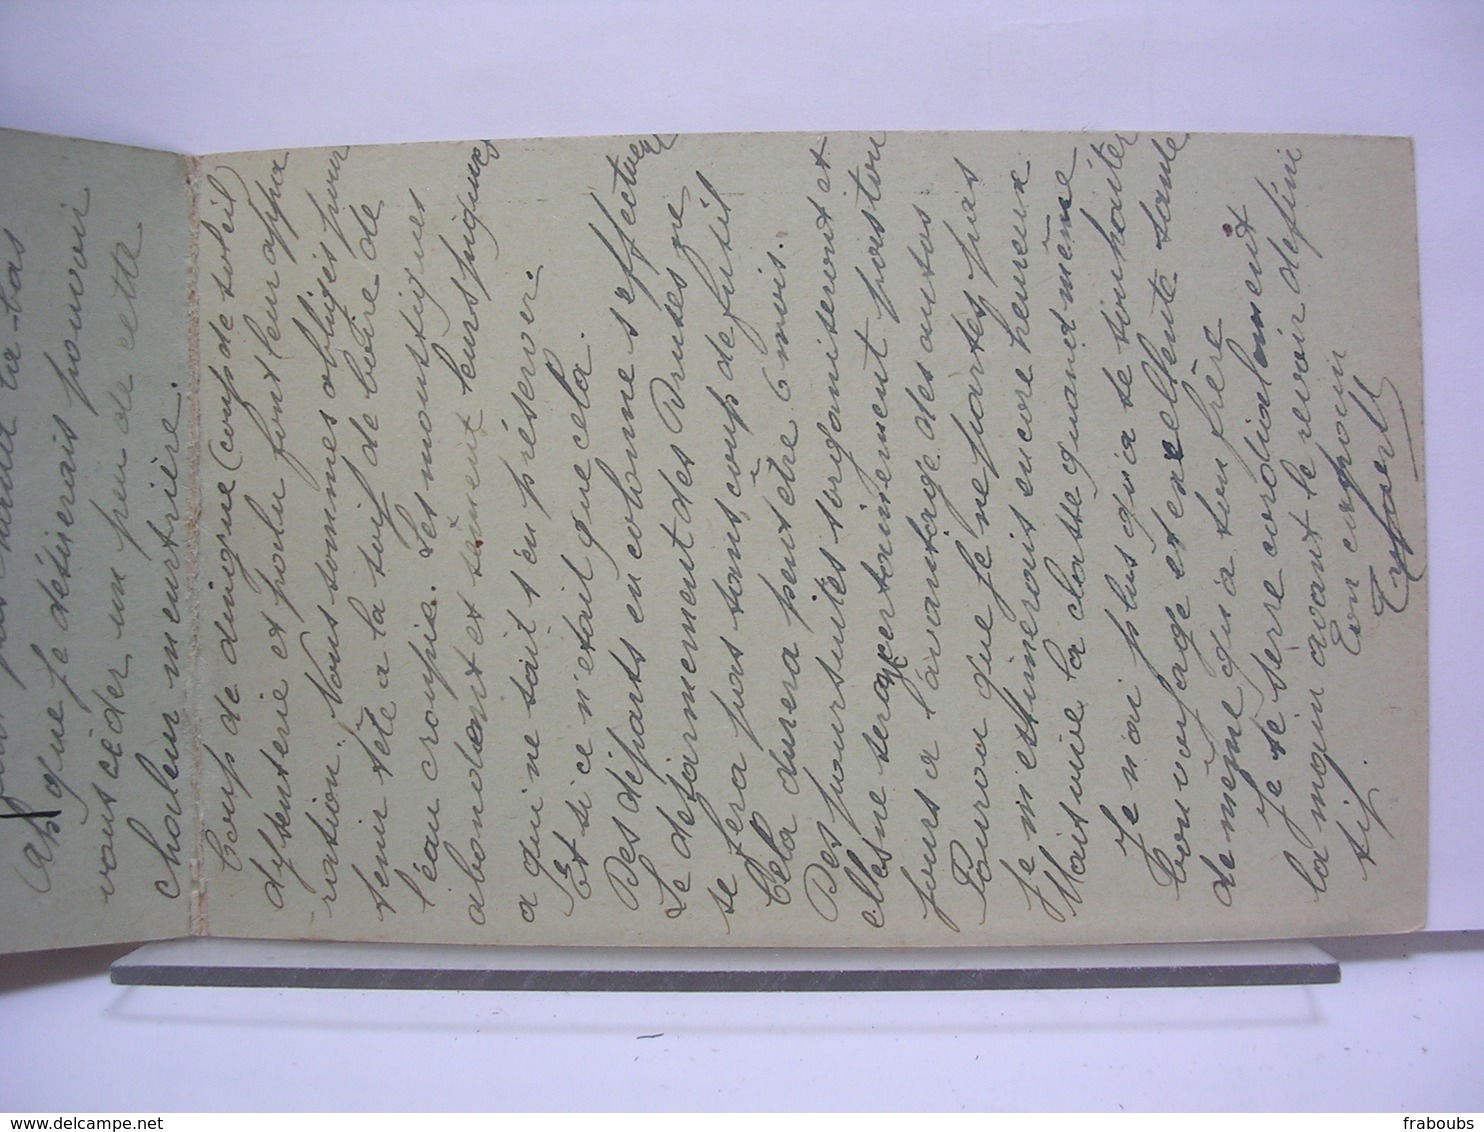 pas chaud là-bas
que je désirerais pouvoir
vous céder un peu de cette
chaleur meurtrière.
Coup de dingue (coup de soleil)
dysenterie et palu font leur appa
rition. Nous sommes obligés pour
tenir tête a la soif de boire de
l'eau croupie. Les moustiques
abondent et sèment leurs piqures
a qui ne sait s'en préserver.
Et si ce n'était que cela.
Des départs en colonne s'effectuent
Le désarmement des Druses ne
se fera pas sans coup de fusil
Cela durera peut être 6 mois.
Des poursuites s'organiseront et
elles ne seront certainement pas tou
jours a l'avantage des autos.
Pourvu que je ne parte pas
je m'estimerais encore heureux
Mais vive la classe quand même
Je n'ai plus qu'a te souhaiter
bon voyage et excellente santé
de même qu'a ton frère
Je te serre cordialement
la main avant le revoir défini
tif.
Ton copain